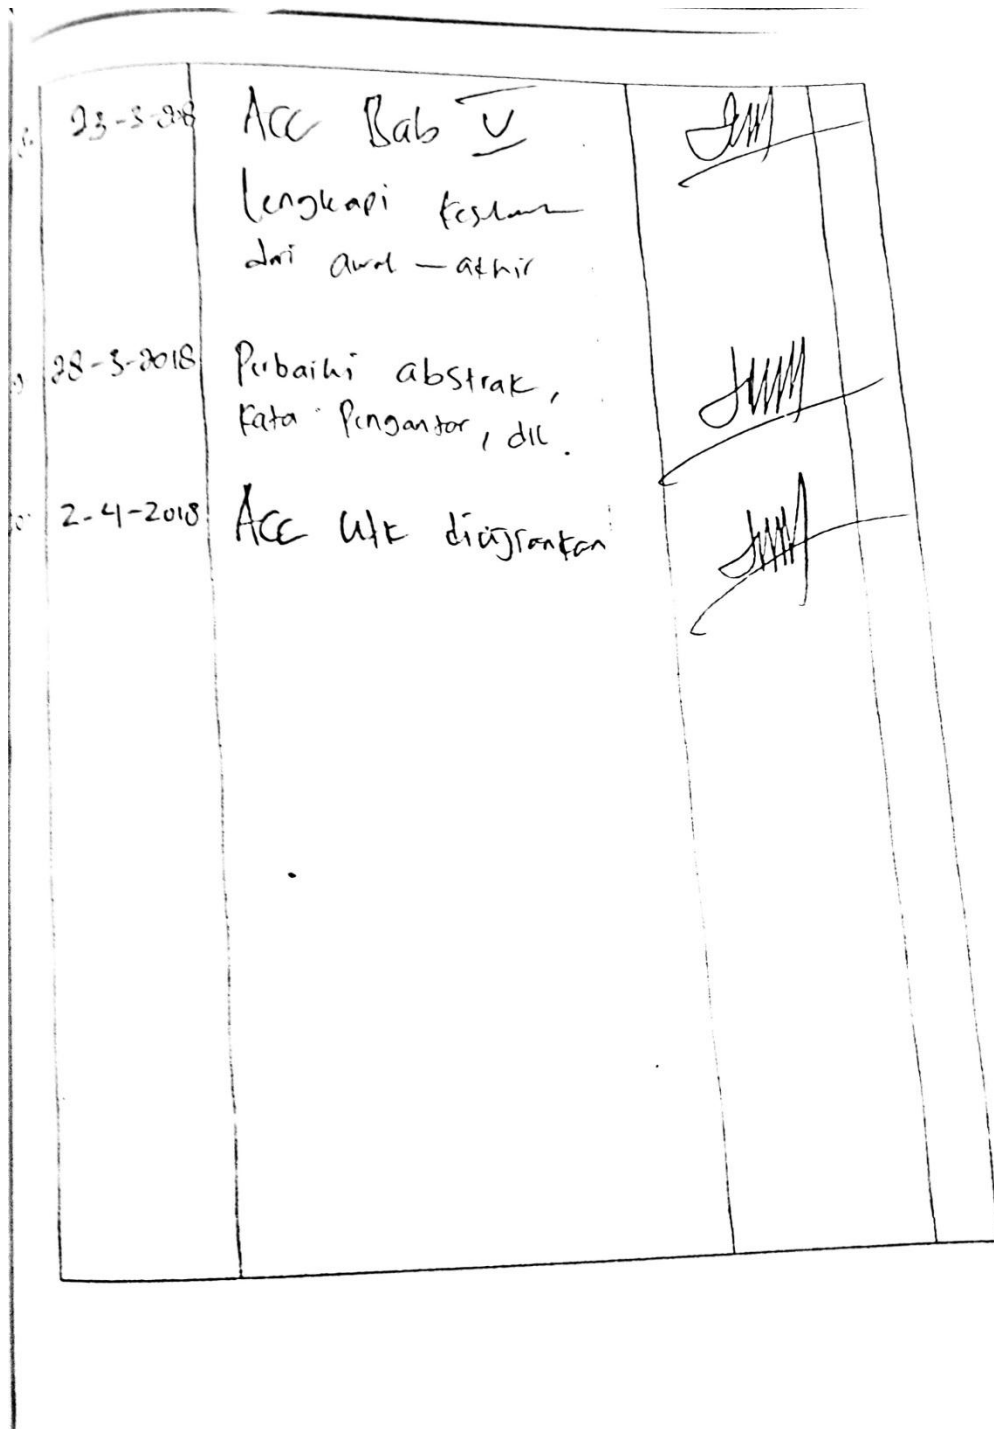 23-3-2018 ACC Bab V
lengkapi
dari awal - akhir
28-3-2018 Perbaiki abstrak,
kata Pengantar, dll.
2-4-2018 ACC utk diujiankan